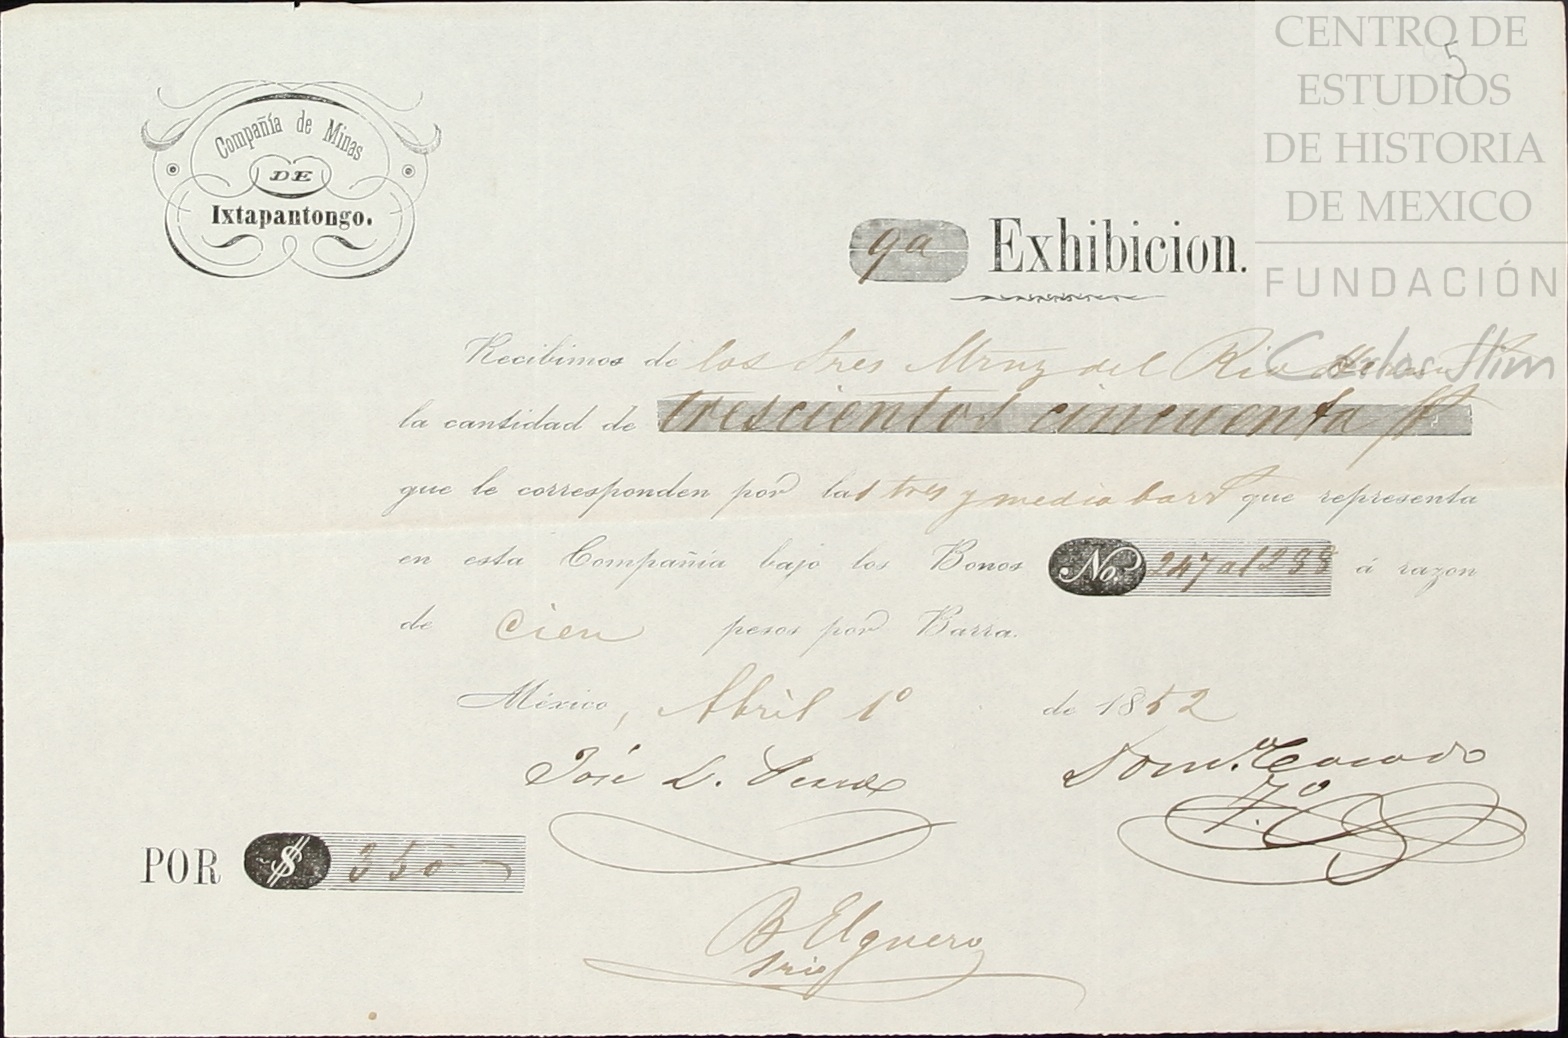 CENTRO DE
ESTUDIOS
DE HISTORIA
DE MEXICO
FUNDACIÓN
Carlos Slim
5
Compañía de Minas
DE
Ixtapantongo.
9a Exhibicion.
Recibimos de los Sres Mrnz del Rio
la cantidad de trescientos cincuenta ps
que le corresponden por las tres y media bars que representa
en esta Compañía bajo los Bonos No. 247 al 288 á razon
de cien pesos por Barra.
México, Abril 1º de 1852
José L.
POR $ 350
B Elguero
Srio